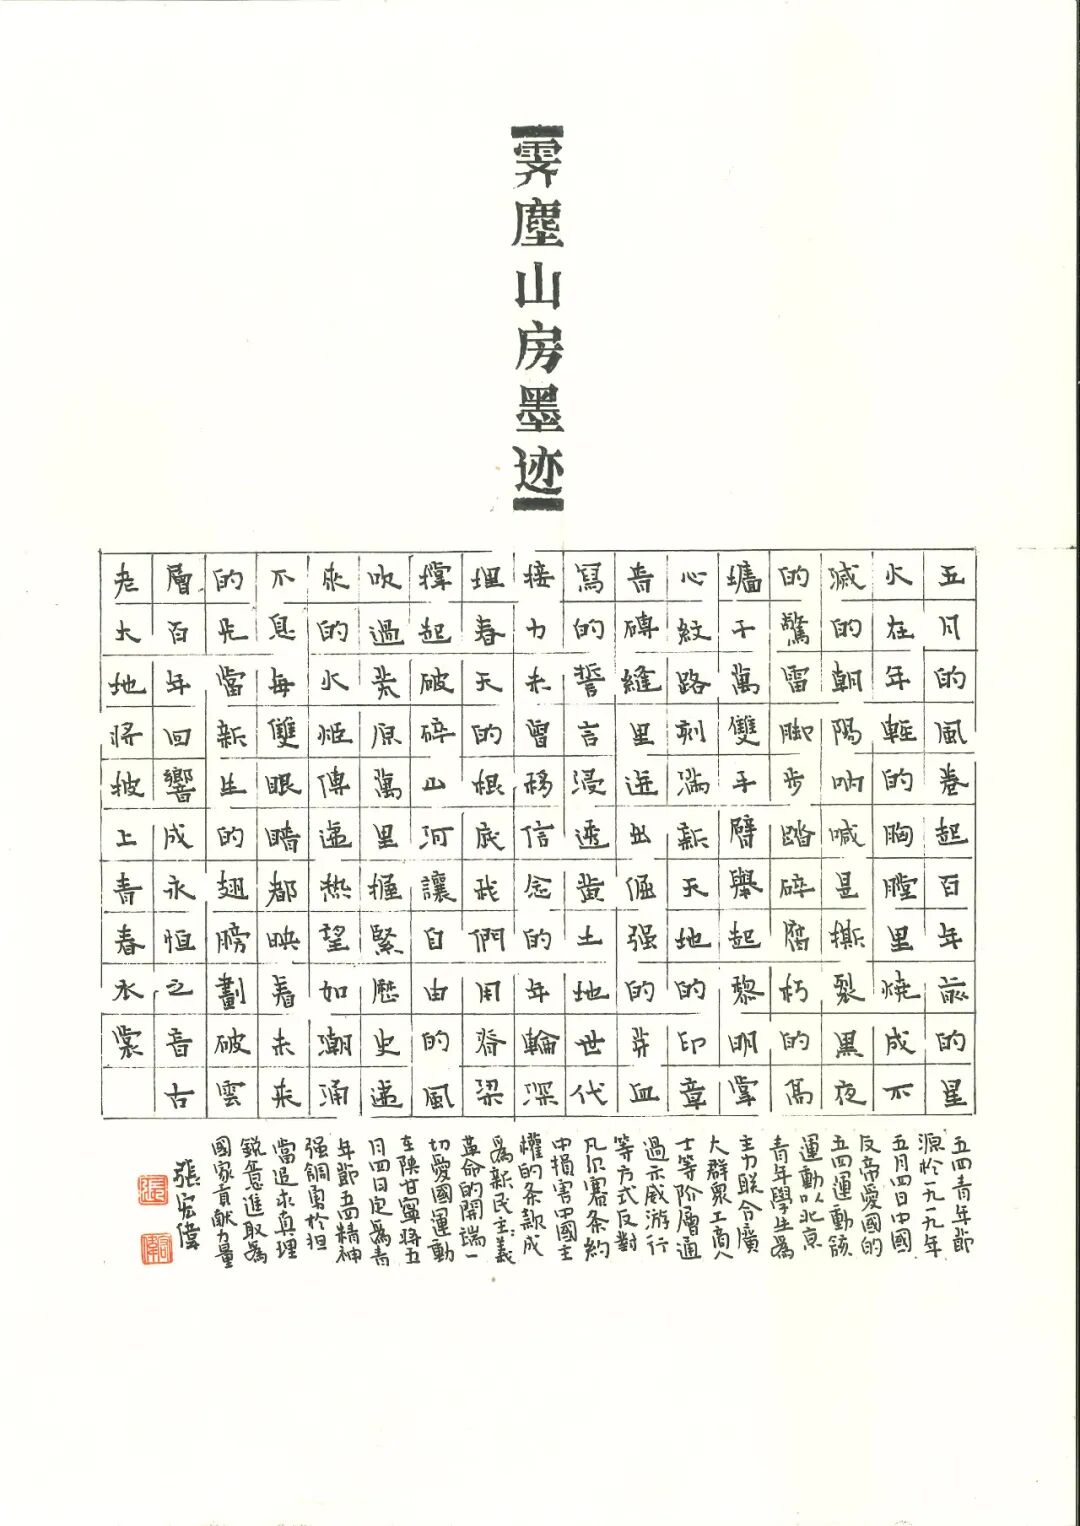 霁塵山房墨迹
五月的風卷起百年前的星
火在年輕的胸膛里燒成不
滅的朝陽吶喊是撕裂黑夜
的驚雷脚步踏碎腐朽的高
墻千萬雙手臂舉起黎明掌
心紋路刻滿新天地的印章
青磚縫里迸出倔强的芽血
寫的誓言浸透黄土地世代
接力未曾移信念的年輪深
埋春天的根底我們用脊梁
撑起破碎山河讓自由的風
吹過荒原萬里握緊歷史遞
來的火炬傳遞熱望如潮涌
不息每雙眼睛都映着未来
的光當新生的翅膀劃破雲
層百年回響成永恒之音古
老大地將披上青春衣裳
五四青年節
源於一九一九年
五月四日中國
反帝愛國的
五四運動該
運動以北京
青年學生為
主力联合廣
大群衆工商人
士等阶層通
過示威游行
等方式反對
凡尔賽条約
中損害中國主
權的条款成
為新民主主義
革命的開端一
切愛國運動
在陕甘寧將五
月四日定為青
年節五四精神
强調勇於担
當追求真理
鋭意進取為
國家貢献力量
張宏偉